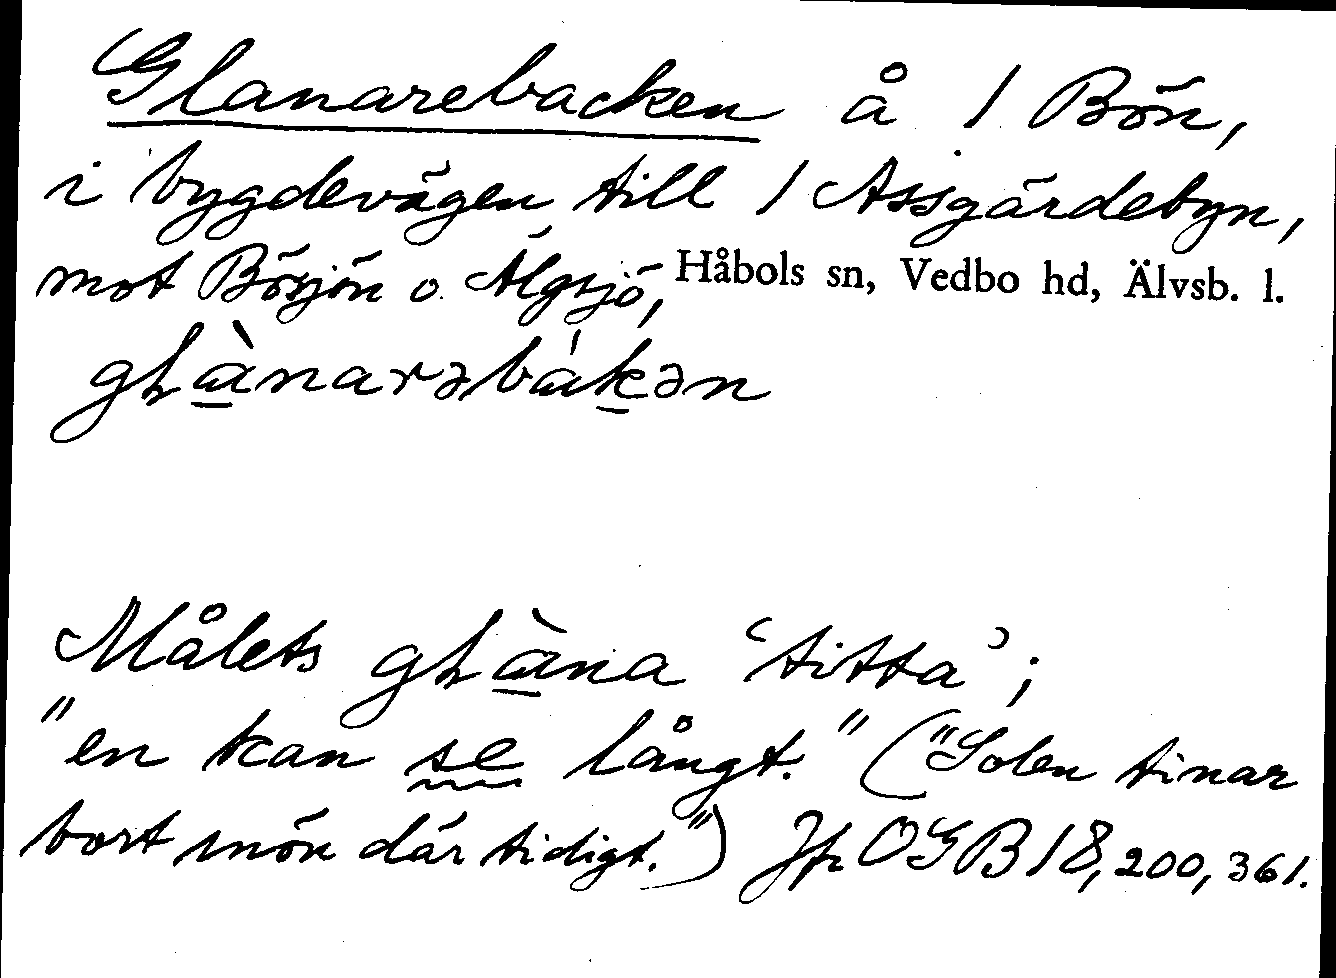 Glanarebacken å 1 Bön,
i bygdevägen till 1 Assgärdebyn,
mot Bösjön o. Älgsjö, Håbols sn, Vedbo hd, Älvsb. l.
gɫànarəbákən
Målets gɫàna ‘titta’;
"en kan se långt." ("Solen tinar
bort snön där tidigt.") Jfr OGB 18, 200, 361.